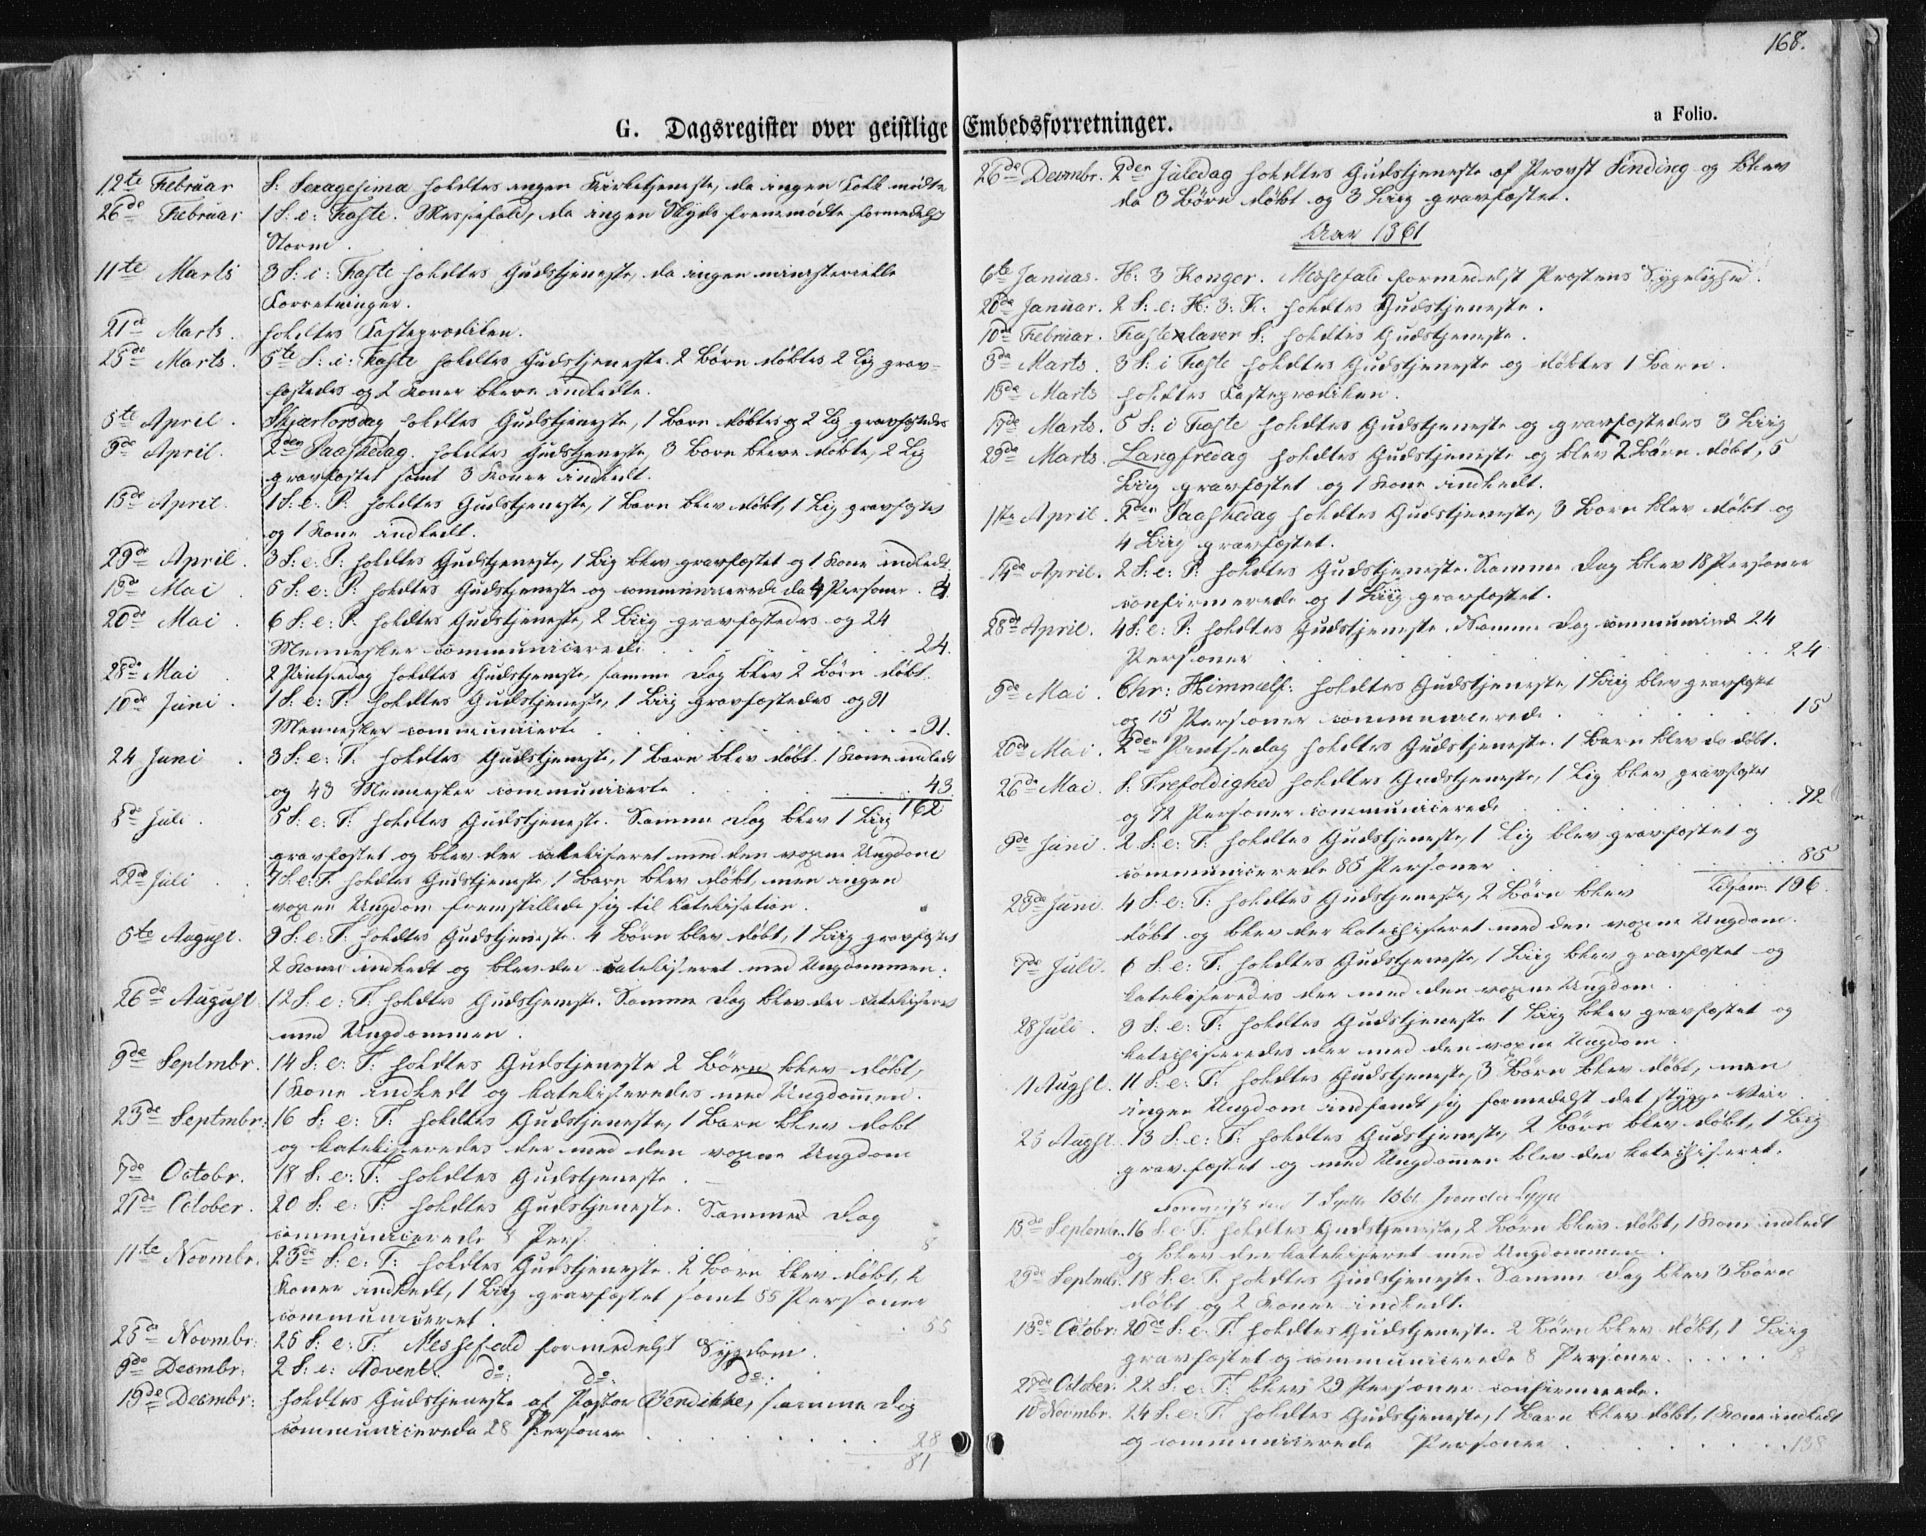 168.
G. Dagsregister over geistlige Embedsforretninger.
a Folio.
12te Februar S: Sexagesima holdtes ingen Kirketjeneste, da ingen Folk mødte
26de Februar 1 S: e: Faste. Messefald, da ingen Skyds fremmødte formedelst
Storm.
11te Marts 3 S: i: Faste holdtes Gudstjeneste, da ingen ministerielle
Forretninger.
21de Marts. holdtes Fasteprædiken.
25de Marts. 5te S: i: Faste holdtes Gudstjeneste. 2 Børn døbtes 2 Lig grav-
fæstedes og 2 Koner bleve indledte.
5te April. Skjærtorsdag holdtes Gudstjeneste, 1 Barn døbtes og 2 Lig gravfæstedes
9de April. 2den Paaskedag. holdtes Gudstjeneste, 3 Børn bleve døbte, 2 Lig
gravfæstet samt 3 Koner indledt.
15de April. 1 S: e: P. holdtes Gudstjeneste, 1 Barn blev døbt, 1 Lig gravfæstet
og 1 Kone indledt.
29de April. 3 S: e: P: holdtes Gudstjeneste, 1 Lig blev gravfæstet og 1 Kone indledt
Mai. 5 S: e: P: holdtes Gudstjeneste og communicerede da 4 Personer. 4.
20de Mai. 6 S: e: P. holdtes Gudstjeneste, 2 Liig gravfæstedes og 24
Mennesker communicerede . . . 24.
28de Mai 2 Pintsedag holdtes Gudstjeneste, samme Dag blev 2 Børn døbt.
10de Juni. 1 S: e: T: holdtes Gudstjeneste, 1 Liig gravfæstedes og 91
Mennesker communicerte . . . 91.
24 Juni. 3 S: e: T. holdtes Gudstjeneste, 1 Barn blev døbt. 1 Kone indledt
og 43 Mennesker communicerte . . . 43.
162
8de Juli. 5 S: e: T: holdtes Gudstjeneste. Samme Dag blev 1 Liig
gravfæstet og blev der catekiseret med den voxne Ungdom
22de Juli 7 S. e: T. holdtes Gudstjeneste, 1 Barn blev døbt, men ingen
voxen Ungdom fremstillede sig til Katekisation.
5te August. 9 S: e: T: holdtes Gudstjeneste. 4 Børn blev døbt, 1 Liig gravfæstet
2 Koner indledt og blev der catekiseret med Ungdommen.
26de August. 12 S. e: T. holdtes Gudstjeneste. Samme Dag blev der catekiseret
med Ungdommen.
9de Septmbr. 14 S: e: T: holdtes Gudstjeneste 2 Børn blev døbt,
1 Kone indledt og katekiseredes med Ungdom̅en.
23de Septmbr. 16 S: e: T: holdtes Gudstjeneste, 1 Barn blev døbt
og katekiseredes der med den voxne Ungdom
7de Octobr. 18 S: e: T: holdtes Gudstjeneste.
21de October. 20 S: e: T: holdtes Gudstjeneste. Samme Dag
communicerede 8 Pers. . . . 8
11te Novmbr. 23de S: e: T: holdtes Gudstjeneste. 2 Børn blev døbt, 2
Koner indledt, 1 Liig gravfæstet samt 55 Personer
communiceret. . . . 55
25de Novmbr: 25 S: e: T: Messefald formedelst Sygdom.
9de Decmbr: 2 S: e: Advent. do: do: do:
19de Decmbr: holdtes Gudstjeneste af Pastor Bendikke, samme Dag
communicerede 28 Personer . . . 28
81
26de Decmbr. 2den Juledag holdtes Gudstjeneste af Provst Sinding og blev
da 3 Børn døbt og 3 Liig gravfæstet.
Aar 1861
6te Januar. H: 3 Konger. Messefald formedelst Prestens Sygelighed.
20de Januar. 2 S: e: H: 3: K: holdtes Gudstjeneste.
10de Februar. Fastelavns S: holdtes Gudstjeneste.
3de Marts. 3 S: i Faste holdtes Gudstjeneste og døbtes 1 Barn.
Marts holdtes Fasteprædiken.
17de Marts. 5 S: i Faste holdtes Gudstjeneste og gravfæstedes 3 Liig
29de Marts. Langfredag holdtes Gudstjeneste og blev 2 Børn døbt, 5
Liig gravfæstet og 1 Kone indledt.
1ste April. 2den Paaskedag holdtes Gudstjeneste, 3 Børn blev døbt og
4 Liig gravfæstet.
14de April. 2 S: e: P: holdtes Gudstjeneste. Samme Dag blev 18 Personer
confirmerede og 1 Liig gravfæstet.
28de April. 4 S: e: P: holdtes Gudstjeneste. Samme Dag communicerede 24
Personer . . . 24
9de Mai. Chr: Himmelf: holdtes Gudstjeneste, 1 Liig blev gravfæstet
og 15 Personer communicerede . . . 15
20de Mai. 2den Pintsedag holdtes Gudstjeneste. 1 Barn blev da døbt.
26de Mai. S. Trefoldighed holdtes Gudstjeneste, 1 Lig blev gravfæstet
og 72 Personer communicerede . . . 72
9de Juni. 2 S: e: T: holdtes Gudstjeneste, 1 Lig blev gravfæstet og
communicerede 85 Personer . . . 85
Tilsam. 196.
23de Juni. 4 S: e: T: holdtes Gudstjeneste, 2 Børn blev
døbt og blev der katechiseret med den voxne Ungdom.
7de Juli. 6 S: e: T: holdtes Gudstjeneste, 1 Liig blev gravfæstet og
katekiseredes der med den voxne Ungdom.
28 Juli. 9 S: e: T: holdtes Gudstjeneste 1 Liig blev gravfæstet og
katechiseredes der med den voxne Ungdom.
11 S: e: T: holdtes Gudstjeneste, 3 Børn blev døbt, men
ingen Ungdom indfandt sig formedelst det stygge Veir.
25 Augst. 13 S: e: T: holdtes Gudstjeneste, 2 Børn blev døbt, 1 Lig
gravfæstet og med Ungdom̅en blev der katechiseret.
7 Septbr 1861.
Septembr. 16 S. e. T. holdtes Gudstjeneste, 2 Børn blev døbt, 1 Kone indledt
og blev der katekiseret med Ungdommen.
29de Septmbr. 18 S. e. T. holdtes Gudstjeneste. Samme Dag blev 3 Børn
døbt og 2 Koner indledt.
13de Octobr. 20de S. e: T. holdtes Gudstjeneste. 2 Børn blev døbt, 1 Liig
gravfæstet og communicerede 8 Personer. . . . 8
27de October. 22 S: e: T: blev 29 Personer confirmerede.
10 Novmbr. 24 S. e: T: holdtes Gudstjeneste, 1 Barn blev døbt, 1 Kone indledt
og communicerede Personer . . . 138